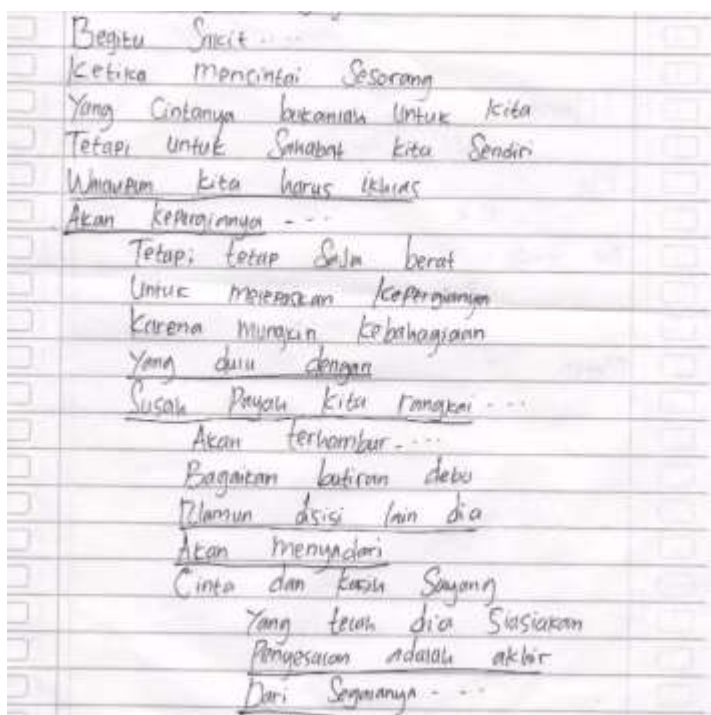 Begitu Sakit ....
Ketika mencintai Sesorang
Yang Cintanya bukanlah Untuk kita
Tetapi Untuk Sahabat kita Sendiri
Walaupun kita harus ikhlas
Akan keperginnya ....
Tetapi tetap Saja berat
Untuk melepaskan kepergianya
Karena mungkin kebahagiaan
Yang dulu dengan
Susah Payah kita rangkai ....
Akan terhambur ....
Bagaikan butiran debu
Namun disisi lain dia
Akan menyadari
Cinta dan kasih Sayang
Yang telah dia Siasiakan
Pengesalan adalah akhir
Dari Segalanya ....